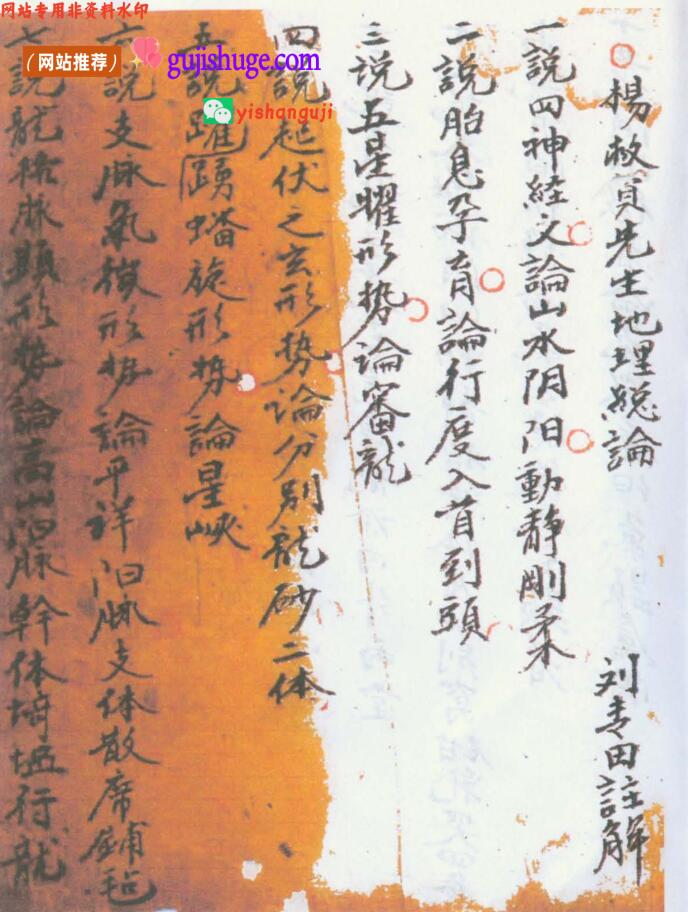 网站专用非资料水印
（网站推荐）
gujishuge.com
yishanguji
楊救貧先生地理總論
刘青田註解
一說四神経文論山水阴阳動静剛柔
二說胎息孕育論行度入首到頭
三说五星曜形势論審龍
四說起伏之玄形势论分别龍砂二体
五說躍踴蟠旋形势論星峽
六說支脉氣微形势論平详阳脉支体散席鋪毡
七說龍格脉顕形势論高山阳脉幹体行龍